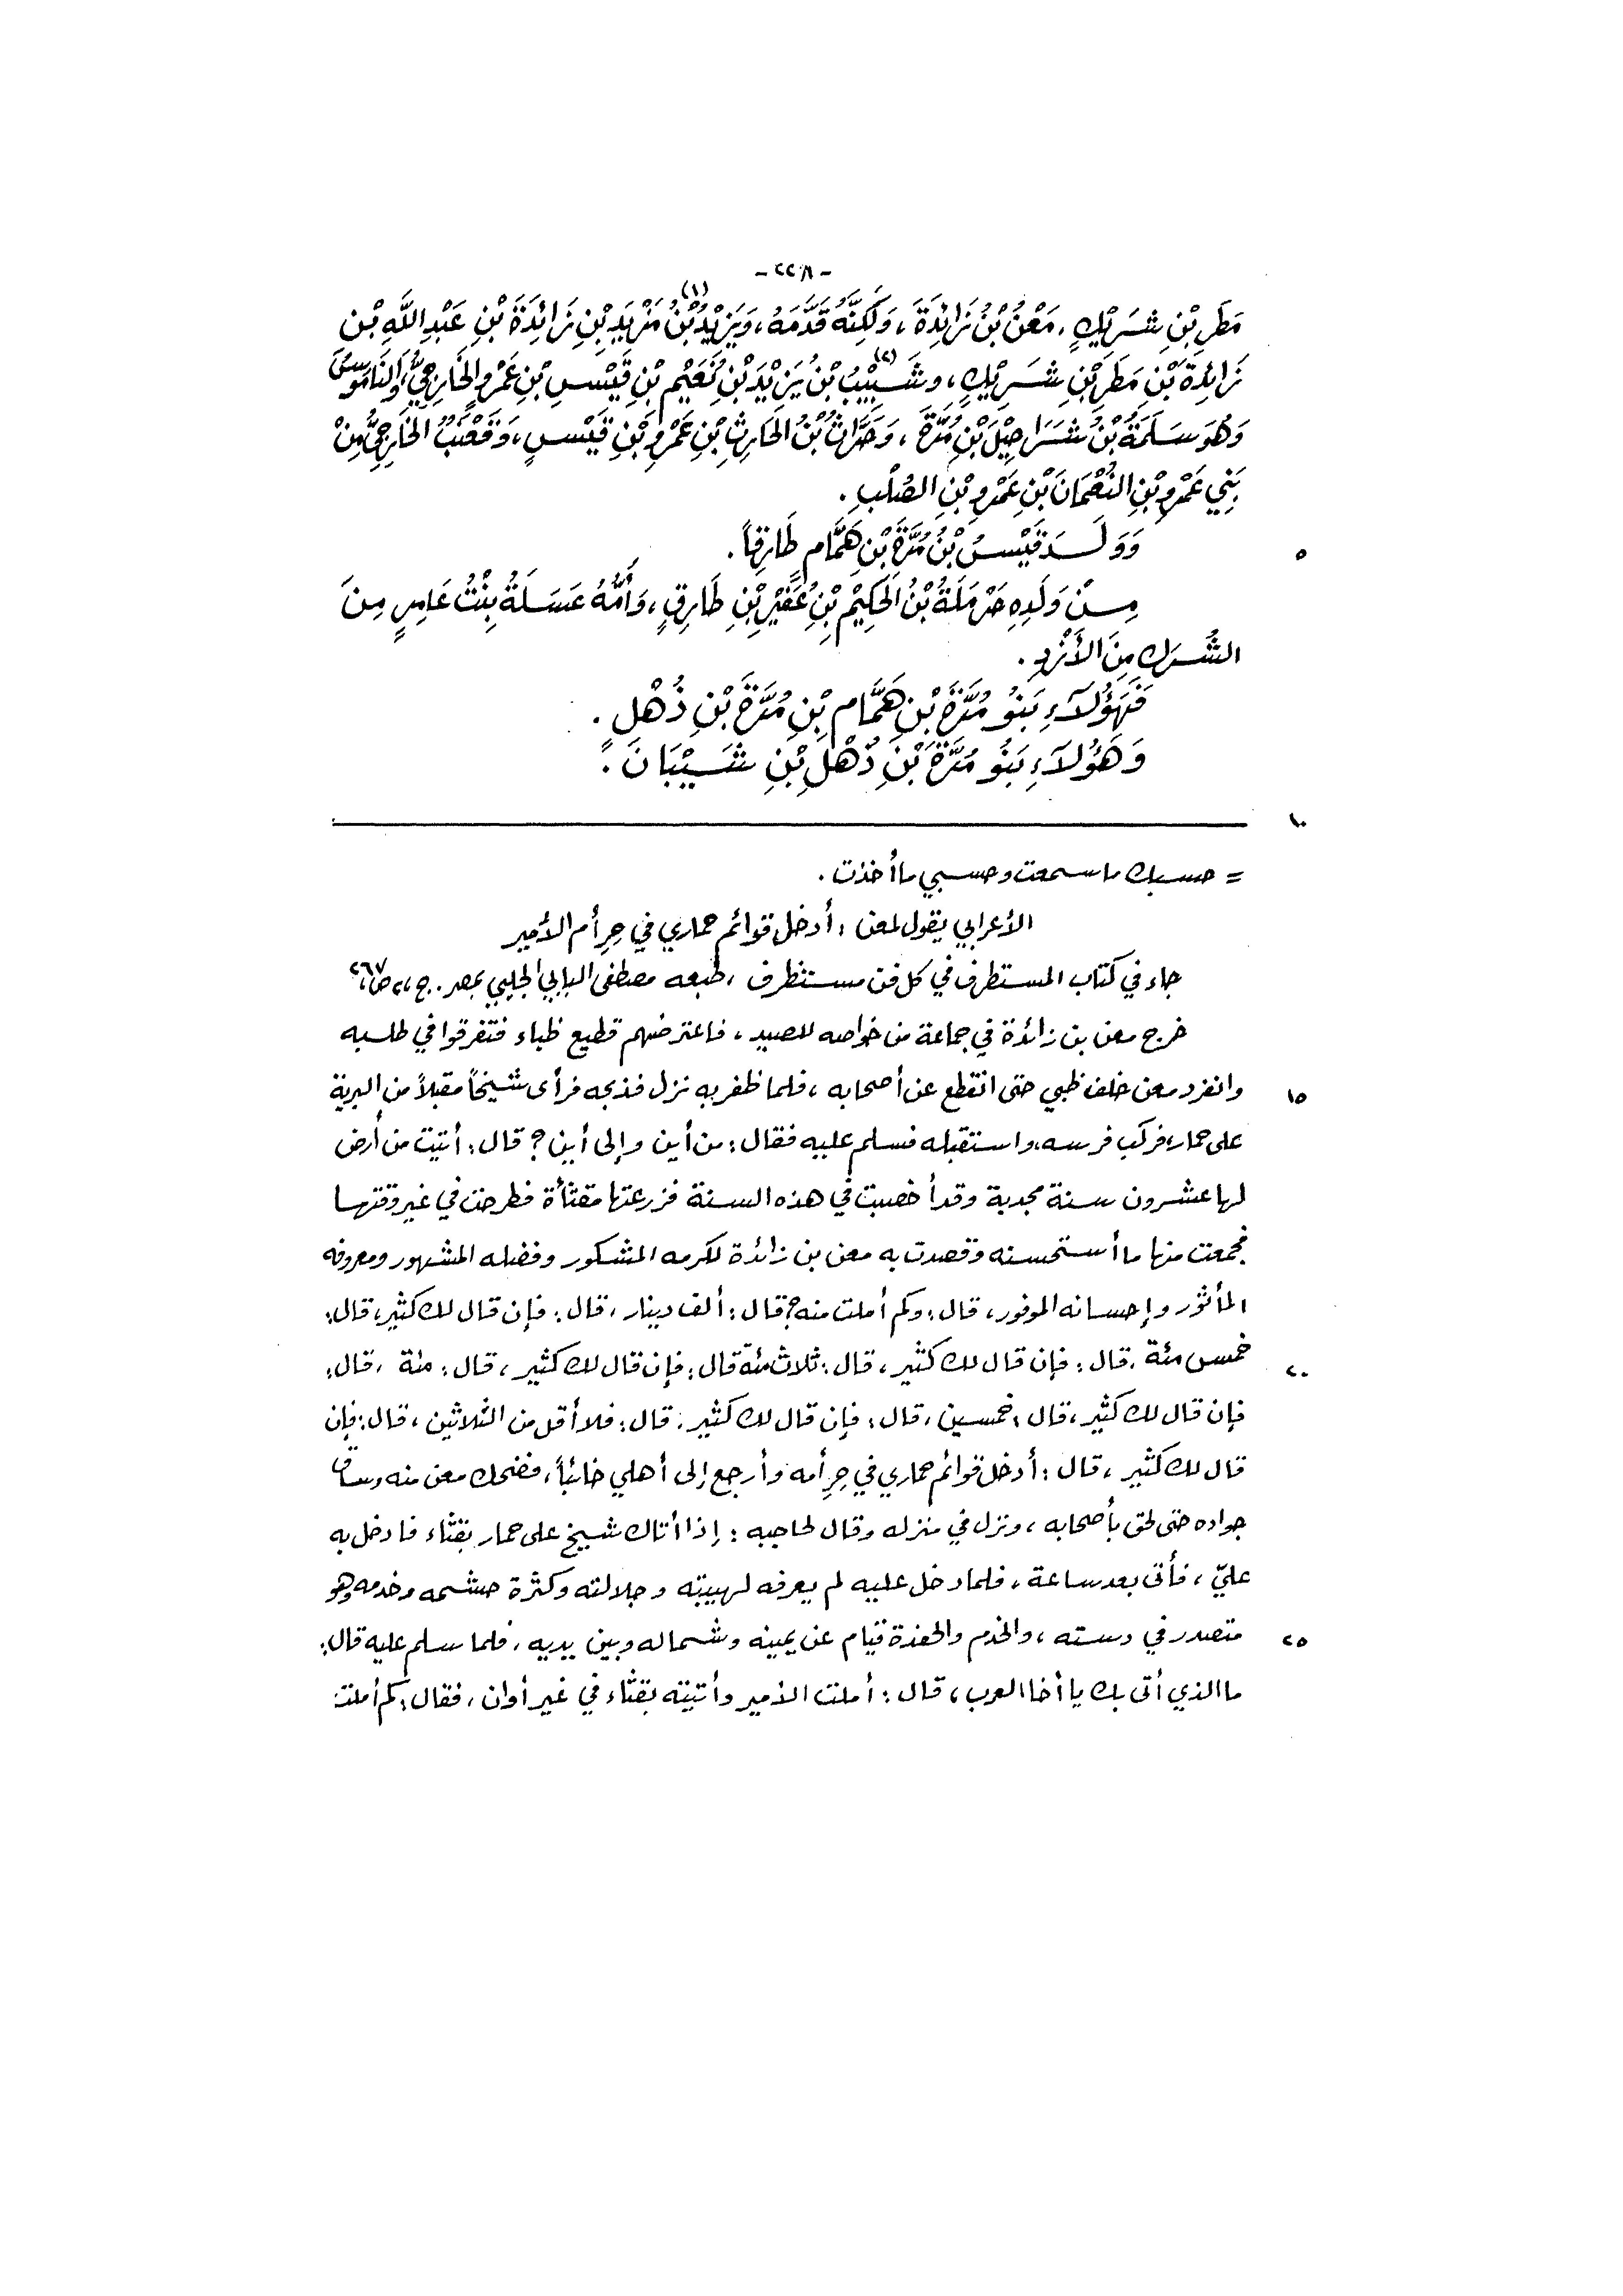 - ٢٢٨ -
مَطَرِ بْنِ شَرِيْكٍ، مَعْنُ بْنُ زَائِدَةَ، وَلَكِنَّهُ قَدَّمَهُ، وَيَزِيْدُ بْنُ مَزْيَدِ (١) بْنِ زَائِدَةَ بْنِ عَبْدِ اللَّهِ بْنِ
زَائِدَةَ بْنِ مَطَرِ بْنِ شَرِيْكٍ، وَشَبِيْبُ (٢) بْنُ يَزِيْدَ بْنِ نُعَيْمِ بْنِ قَيْسِ بْنِ عَمْرٍو الخَارِجِيُّ، وَالنَّامُوسُ
وَهُوَ سَلَمَةُ بْنُ شَرَاحِيْلَ بْنِ مُرَّةَ، وَحَرَّاثُ بْنُ الحَارِثِ بْنِ عَمْرِو بْنِ قَيْسٍ، وَقَعْنَبُ الخَارِجِيُّ مِنْ
بَنِي عَمْرِو بْنِ النُعْمَانَ بْنِ عَمْرِو بْنِ الصُلْبِ.
وَوَلَدَ قَيْسُ بْنُ مُرَّةَ بْنِ هَمَّامٍ طَارِقاً.
٥
مِنْ وَلَدِهِ حَرْمَلَةُ بْنُ الحَكِيْمِ بْنِ عُفَيْرِ بْنِ طَارِقٍ، وَأُمُّهُ عَسَلَةُ بِنْتُ عَامِرٍ مِنَ
الشُرَكِ مِنَ الأَزْدِ.
فَهَؤُلَاءِ بَنُو مُرَّةَ بْنِ هَمَّامِ بْنِ مُرَّةَ بْنِ ذُهْلٍ.
وَهَؤُلَاءِ بَنُو مُرَّةَ بْنِ ذُهْلِ بْنِ شَيْبَانَ.
١٠
= حسبك ما سمعت وحسبي ما أخذت.
الأعرابي يقول لمعن: أدخل قوائم حماري في حِرِ أم الأمير
جاء في كتاب المستطرف في كل فن مستظرف، طبعه مصطفى البابي الحلبي بمصر. ج ٢، ص ٢٦٧
خرج معن بن زائدة في جماعة من خواصه للصيد، فاعترضهم قطيع ظباء فتفرقوا في طلبه
وانفرد معن خلف ظبي حتى انقطع عن أصحابه، فلما ظفر به نزل فذبحه فرأى شيخاً مقبلاً من البرية
١٥
على حمار، فركب فرسه، واستقبله فسلم عليه فقال: من أين وإلى أين؟ قال: أتيت من أرض
لها عشرون سنة مجدبة وقد أخصبت في هذه السنة فزرعتها مقثأة فطرحت في غير وقتها
فجمعت منها ما أستحسنه وقصدت به معن بن زائدة لكرمه المشكور وفضله المشهور ومعروفه
المأثور وإحسانه الموفور، قال: وكم أملت منه؟ قال: ألف دينار، قال: فإن قال لك كثير، قال:
خمس مئة، قال: فإن قال لك كثير، قال: ثلاث مئة قال: فإن قال لك كثير، قال: مئة، قال:
٢٠
فإن قال لك كثير، قال: خمسين، قال: فإن قال لك كثير. قال: فلا أقل من الثلاثين، قال: فإن
قال لك كثير، قال: أدخل قوائم حماري في حِرِ أمه وأرجع إلى أهلي خائباً، فضحك معن منه وساق
جواده حتى لحق بأصحابه، ونزل في منزله وقال لحاجبه: إذا أتاك شيخ على حمار بقثاء فادخل به
عليّ، فأتى بعد ساعة، فلما دخل عليه لم يعرفه لهيبته وجلالته وكثرة حشمه وخدمه وهو
متصدر في دسته، والخدم والحفدة قيام عن يمينه وشماله وبين يديه، فلما سلم عليه قال:
٢٥
ما الذي أتى بك يا أخا العرب، قال: أملت الأمير وأتيته بقثاء في غير أوان، فقال: كم أملت: